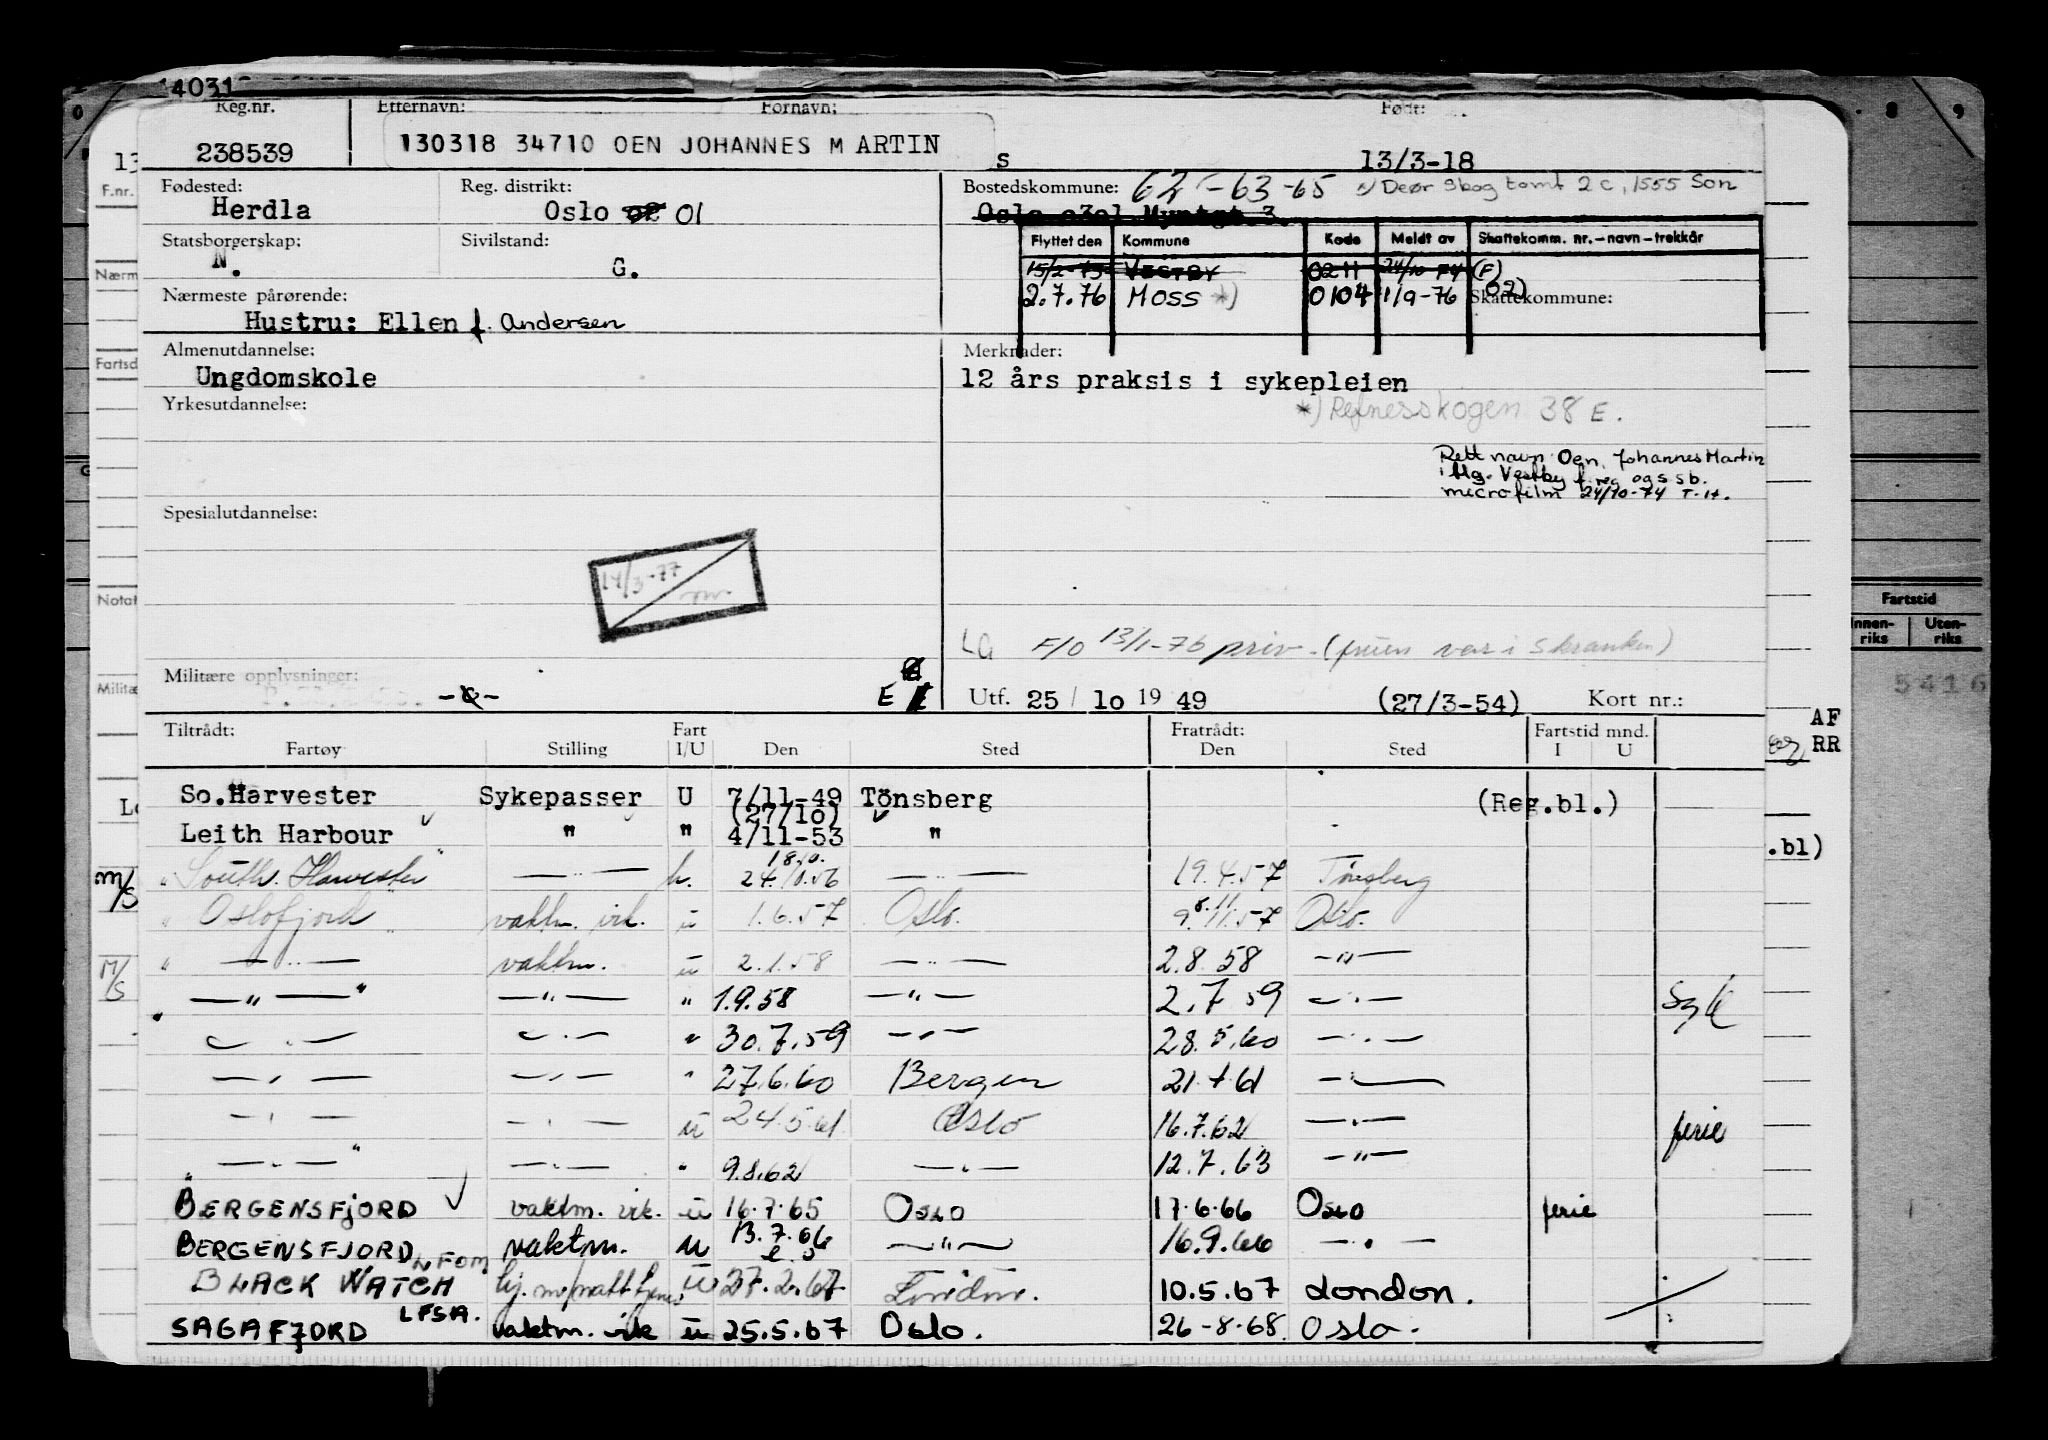 14031
Reg.nr. Etternavn: Fornavn: Født:
238539 130318 34710 OEN JOHANNES MARTIN s 13/3-18
Fødested: Reg. distrikt: Bostedskommune: 62-63-65 Deør Skog tomt 2c, 1555 Son
Herdla Oslo 02 01 Oslo
Statsborgerskap: Sivilstand: Flyttet den Kommune Kode Meldt av Skattekomm. nr.-navn-trekkår
N. G. 15/2-75 VESTBY 0211 24/10 74 (F)
Nærmeste pårørende: 2.7.76 MOSS *) 0104 1/9-76 02) Skattekommune:
Hustru: Ellen f. Andersen
Almenutdannelse: Merknader:
Ungdomskole 12 års praksis i sykepleien
Yrkesutdannelse: *) Refnesskogen 38 E.
Rett navn Oen, Johannes Martin
i flg. Vestby f.reg og s.sb.
microfilm 24/10-74 T.H.
Spesialutdannelse:
14/3-77
LG F/O 13/1-76 priv. (fruen var i Skranken)
Militære opplysninger: E Utf. 25/10 1949 (27/3-54) Kort nr.:
Tiltrådt: Fart Fratrådt: Fartstid mnd.
Fartøy Stilling I/U Den Sted Den Sted I U
So.Harvester Sykepasser U 7/11-49 Tönsberg (Reg.bl.)
(27/10)
Leith Harbour " " 4/11-53 "
18.10.
" South. Harvester — " — u. 24.10.56 — " — 19.4.57 Tönsberg
" Oslofjord vaktm. vik. u 1.6.57 Oslo. 9.11.57 Oslo.
8.11
" — " — vaktm. u 2.1.58 — " — 2.8.58 — " —
— " — — " — " 1.9.58 — " — 2.7.59 — " — Syk
— " — — " — " 30.7.59 — " — 28.5.60 — " —
— " — — " — " 27.6.60 Bergen 21.4.61 — " —
— " — — " — u 24.5.61 Oslo 16.7.62 — " — ferie
— " — — " — " 9.8.62 — " — 12.7.63 — " —
BERGENSFJORD vaktm. vik. u 16.7.65 Oslo 17.6.66 Oslo ferie
BERGENSFJORD vaktm. u 13.7.66 — " — 16.9.66 — " —
BLACK WATCH u 27.2.67 London. 10.5.67 London.
SAGAFJORD LFSA. vaktm. vik u 25.5.67 Oslo. 26-8-68 Oslo.
F.nr.
Nærm
Fartsd
Notat
Militæ
M/S
M/S
8 9
Fartstid
Innenriks Utenriks
5416
AF
RR
.bl)